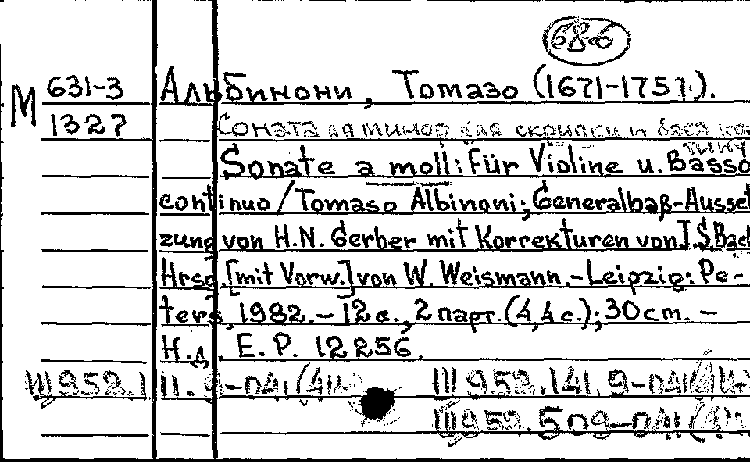 686
М 631-3 Альбинони, Томазо (1671-1751).
1327 Соната ля минор для скрипки и баса
Sonate a moll: Für Violine u. Basso
continuo / Tomaso Albinoni; Generalbaß-Ausset
zung von H.N. Gerber mit Korrekturen von J.S.Bach
Hrsg. [mit Vorw.] von W. Weismann.-Leipzig: Pe-
ters, 1982.-12 с., 2 парт. (4,4 с.); 30cm. -
Н.д. E.P. 12256.
Ш952.111.9-041 Ш952.141.9-041
Ш952.509-041